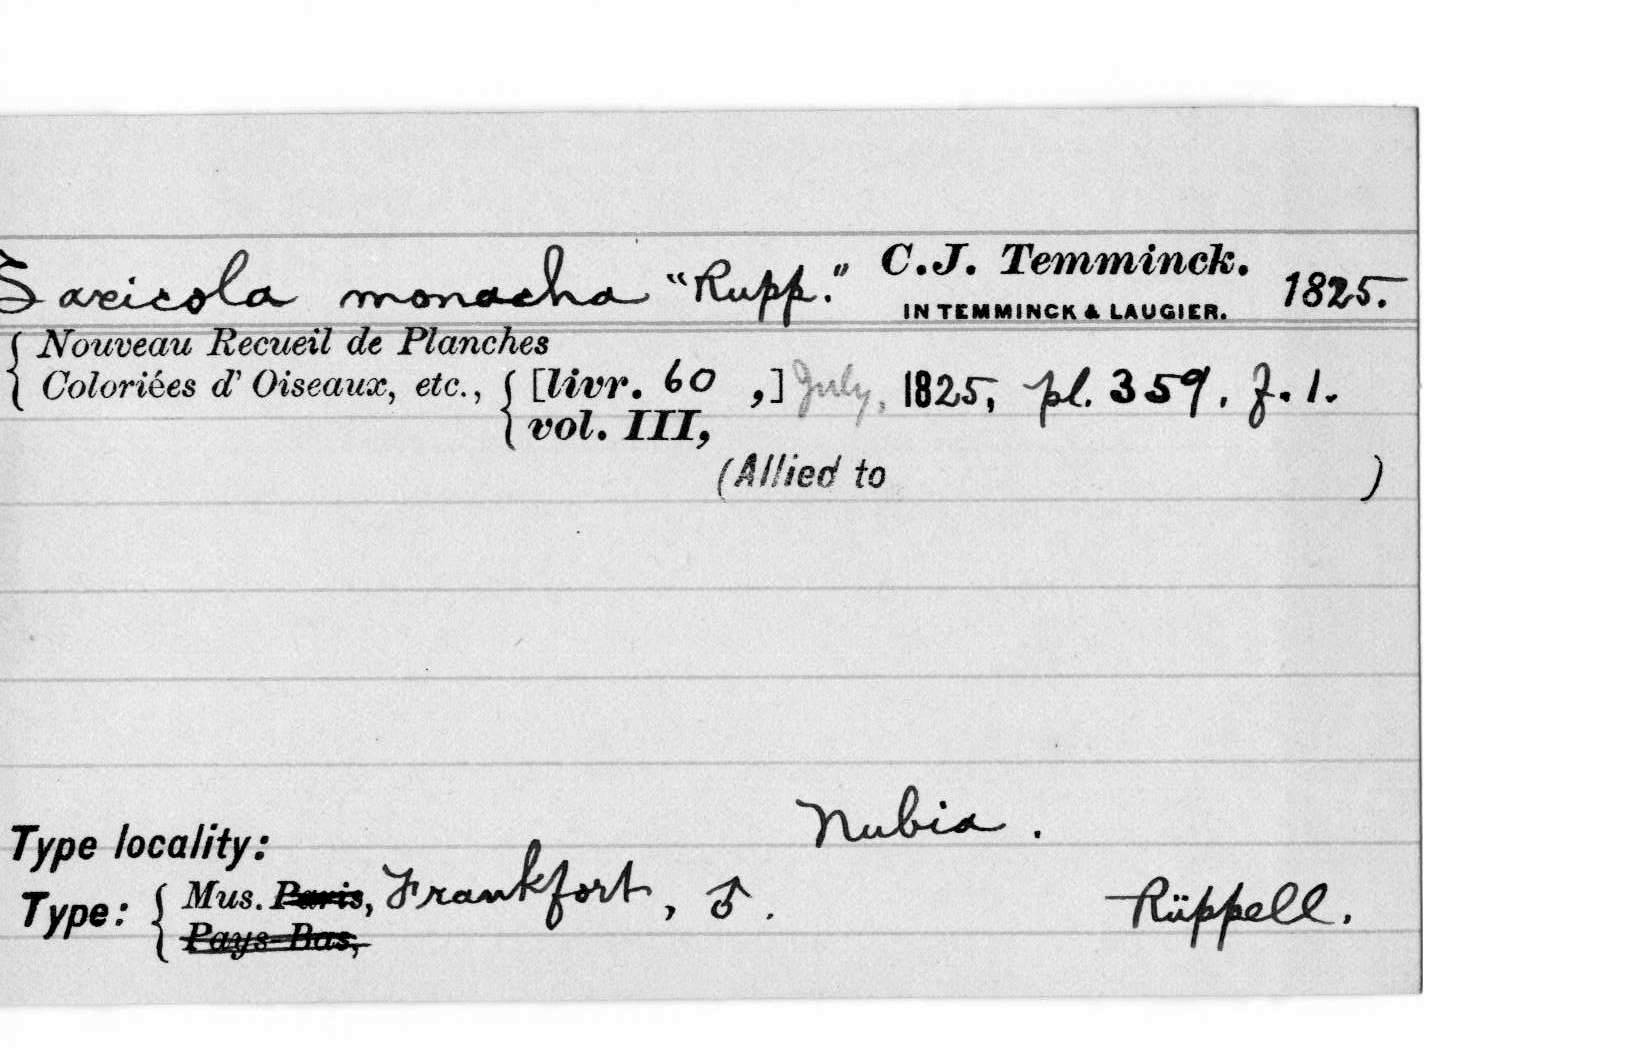 Saxicola monacha "Rupp." C.J. Temminck. 1825.
IN TEMMINCK & LAUGIER.
Nouveau Recueil de Planches
Coloriées d' Oiseaux, etc., [livr. 60 ,] July, 1825, pl. 359. f. 1.
vol. III,
(Allied to )
Nubia.
Type locality:
Type: Mus. Paris, Frankfort, ♂. Rüppell.
Pays-Bas,